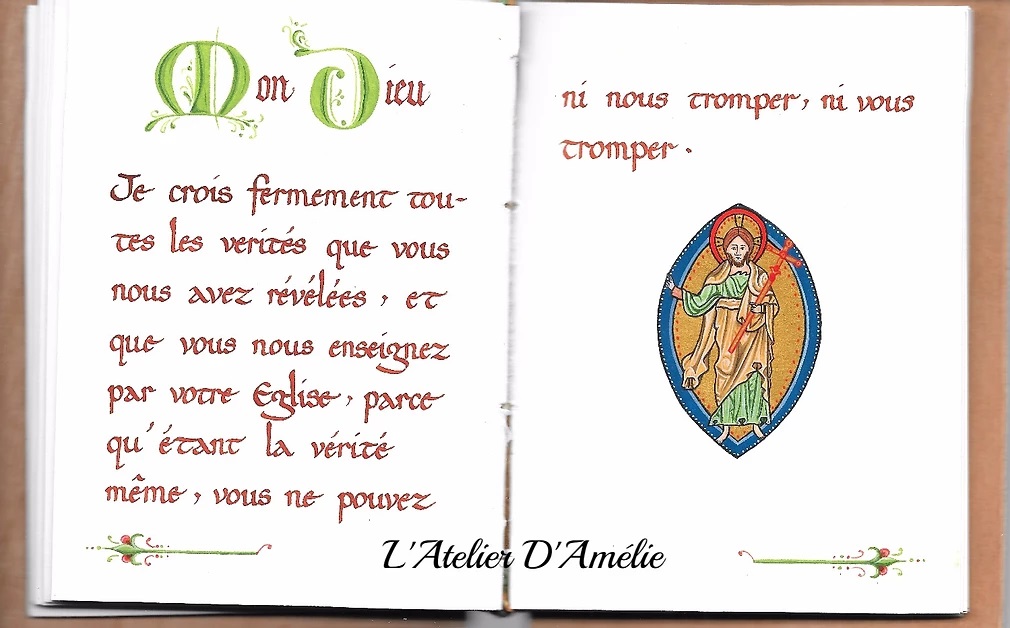 Mon Dieu
Je crois fermement tou-
tes les verités que vous
nous avez révélées, et
que vous nous enseignez
par votre Eglise, parce
qu'étant la vérité
même, vous ne pouvez
ni nous tromper, ni vous
tromper.
L'Atelier D'Amélie